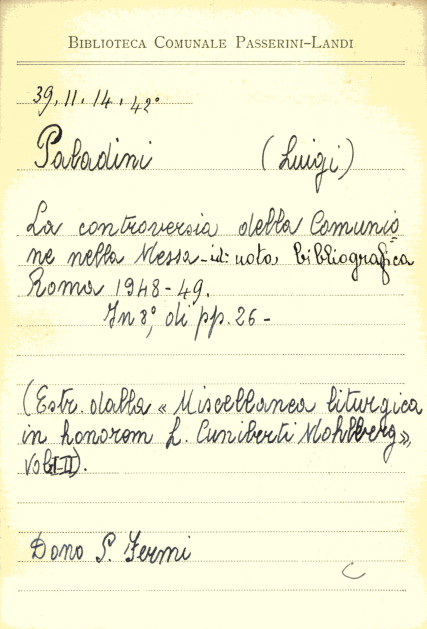 BIBLIOTECA COMUNALE PASSERINI-LANDI
39.11.14.42°
Paladini (Luigi)
La controversia della Comunio=
ne nella Messa - id: nota bibliografica
Roma 1948-49.
In 8°, di pp. 26 -
(Estr. dalla « Miscellanea liturgica
in honorem L. Cuniberti Mohlberg »,
vol. I-II).
Dono S. Fermi
C